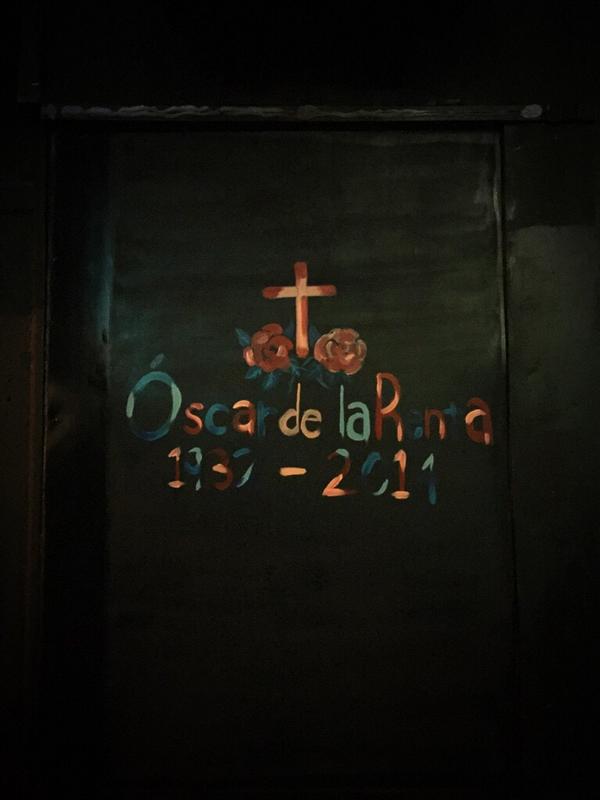 Óscar de la Renta
1932 - 2014